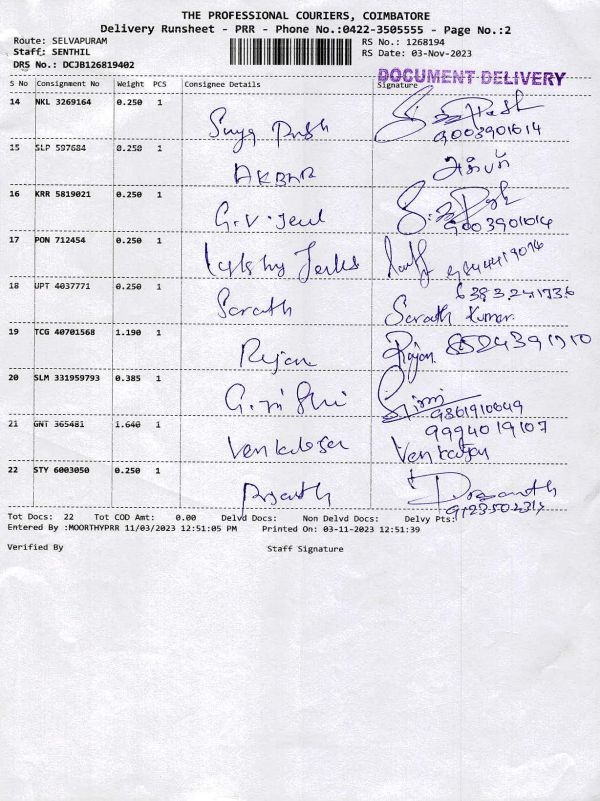 THE PROFESSIONAL COURIERS, COIMBATORE
Delivery Runsheet - PRR - Phone No.:0422-3505555 - Page No.:2
Route: SELVAPURAM RS No.: 1268194
Staff: SENTHIL RS Date: 03-Nov-2023
DRS No.: DCJB126819402
DOCUMENT DELIVERY
S No Consignment No Weight PCS Consignee Details Signature
14 NKL 3269164 0.250 1
9003901614
15 SLP 597684 0.250 1 AKBAR அக்பர்
16 KRR 5819021 0.250 1 G.V.
9003901614
17 PON 712454 0.250 1
18 UPT 4037771 0.250 1 Sarath Sarath Kumar
19 TCG 40701568 1.190 1 Rajan Rajan 8524391710
20 SLM 331959793 0.385 1
9361910649
21 GNT 365481 1.640 1 Venkatesan Venkatesan
9994019107
22 STY 6003050 0.250 1 Prasanth Prasanth
Tot Docs: 22 Tot COD Amt: 0.00 Delvd Docs: Non Delvd Docs: Delvy Pts:
Entered By :MOORTHYPRR 11/03/2023 12:51:05 PM Printed On: 03-11-2023 12:51:39
Verified By Staff Signature